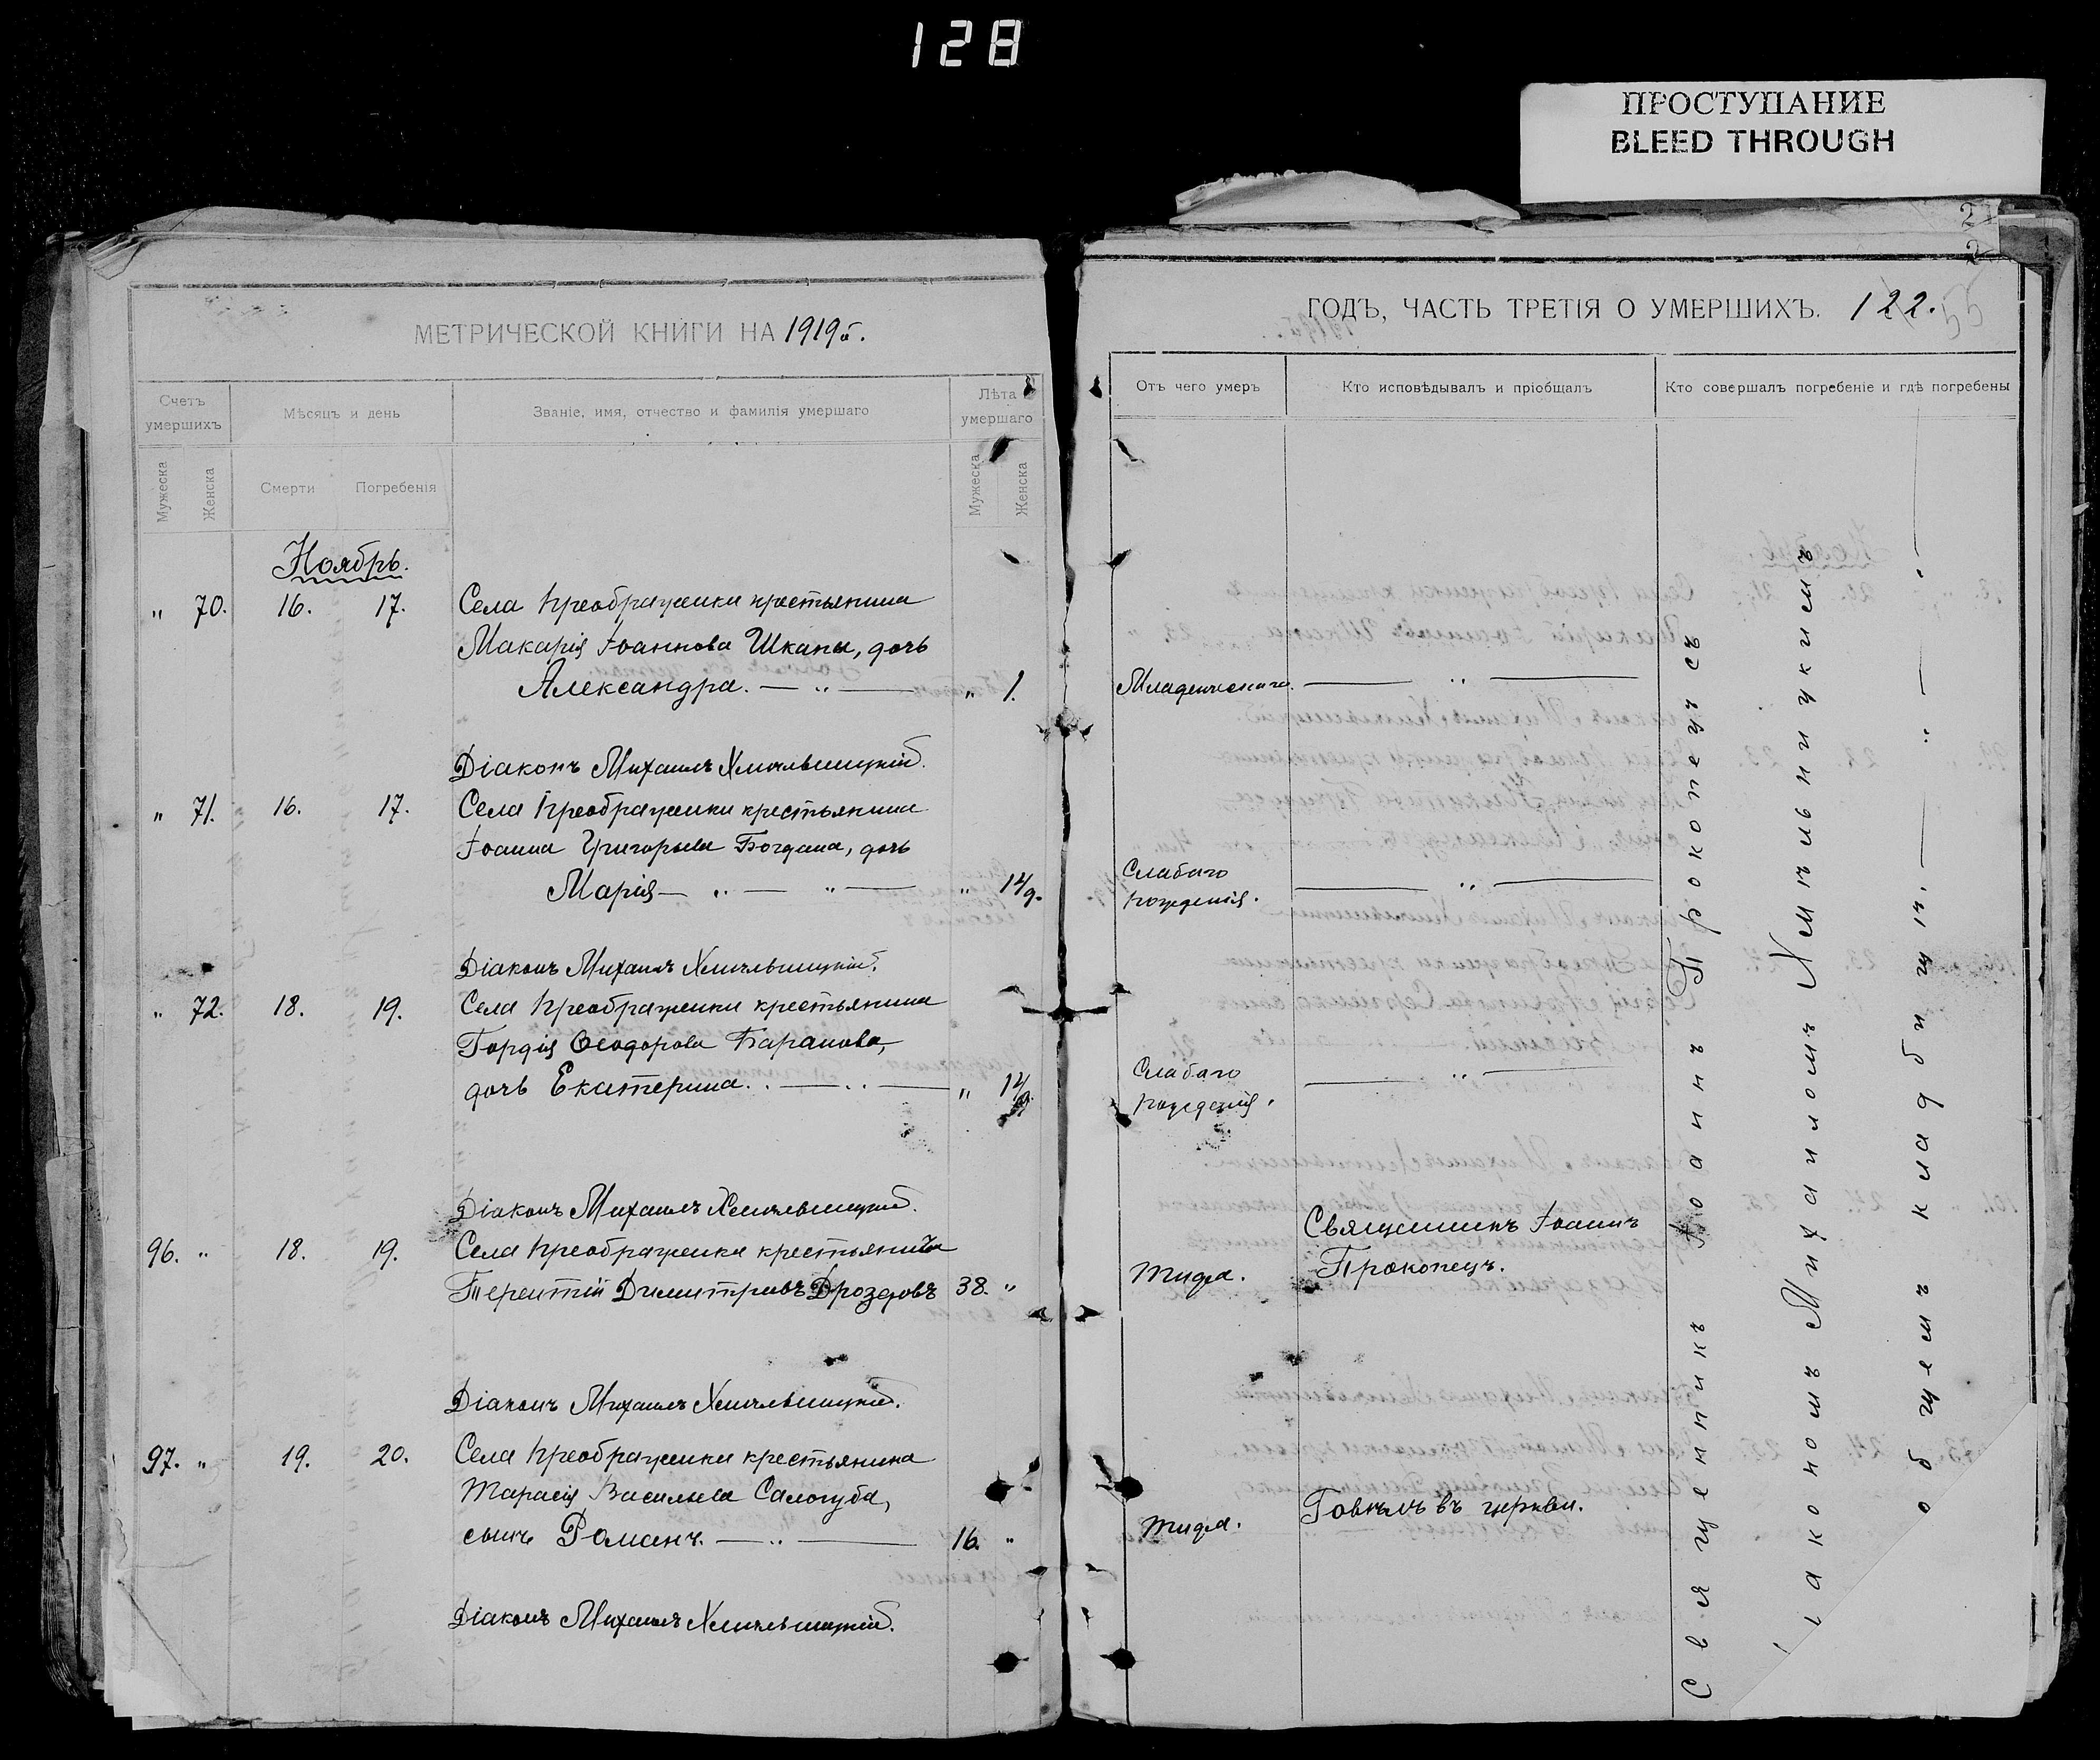 128
ПРОСТУПАНИЕ
BLEED THROUGH
МЕТРИЧЕСКОЙ КНИГИ НА 1919й.
Счетъ умершихъ
Мѣсяцъ и день
Званіе, имя, отчество и фамилія умершаго
Лѣта умершаго
Мужеска
Женска
Смерти
Погребенія
Мужеска
Женска
Ноябрь.
" 70. 16. 17. Села Преображенки крестьянина
Макарія Іоаннова Шкапы, дочь
Александра. — " — " 1.
Діаконъ Михаилъ Хмѣльницкій.
" 71. 16. 17. Села Преображенки крестьянина
Іоанна Григорьева Богдана, дочь
Марія — " — " — " 14/д.
Діаконъ Михаилъ Хмѣльницкій.
" 72. 18. 19. Села Преображенки крестьянина
Гордія Ѳеодорова Баранова,
дочь Екатерина. — " — " 14/д.
Діаконъ Михаилъ Хмѣльницкій.
96. " 18. 19. Села Преображенки крестьянинъ
Терентій Димитріевъ Дроздовъ 38. "
Діаконъ Михаилъ Хмѣльницкій.
97. " 19. 20. Села Преображенки крестьянина
Тарасія Васильева Салогуба,
сынъ Романъ. — " — 16. "
Діаконъ Михаилъ Хмѣльницкій.
ГОДЪ, ЧАСТЬ ТРЕТІЯ О УМЕРШИХЪ. 122. 55
Отъ чего умеръ
Кто исповѣдывалъ и пріобщалъ
Кто совершалъ погребеніе и гдѣ погребены
Младенческаго. — " —
Слабаго
рожденія. — " —
Слабаго
рожденія. — " —
Тифа. Священникъ Іоаннъ
Прокопецъ.
Тифа. Говѣлъ въ церкви.
Священникъ Іоаннъ Прокопецъ съ
діакономъ Михаиломъ Хмѣльницкимъ
общемъ кладбищѣ. — " —